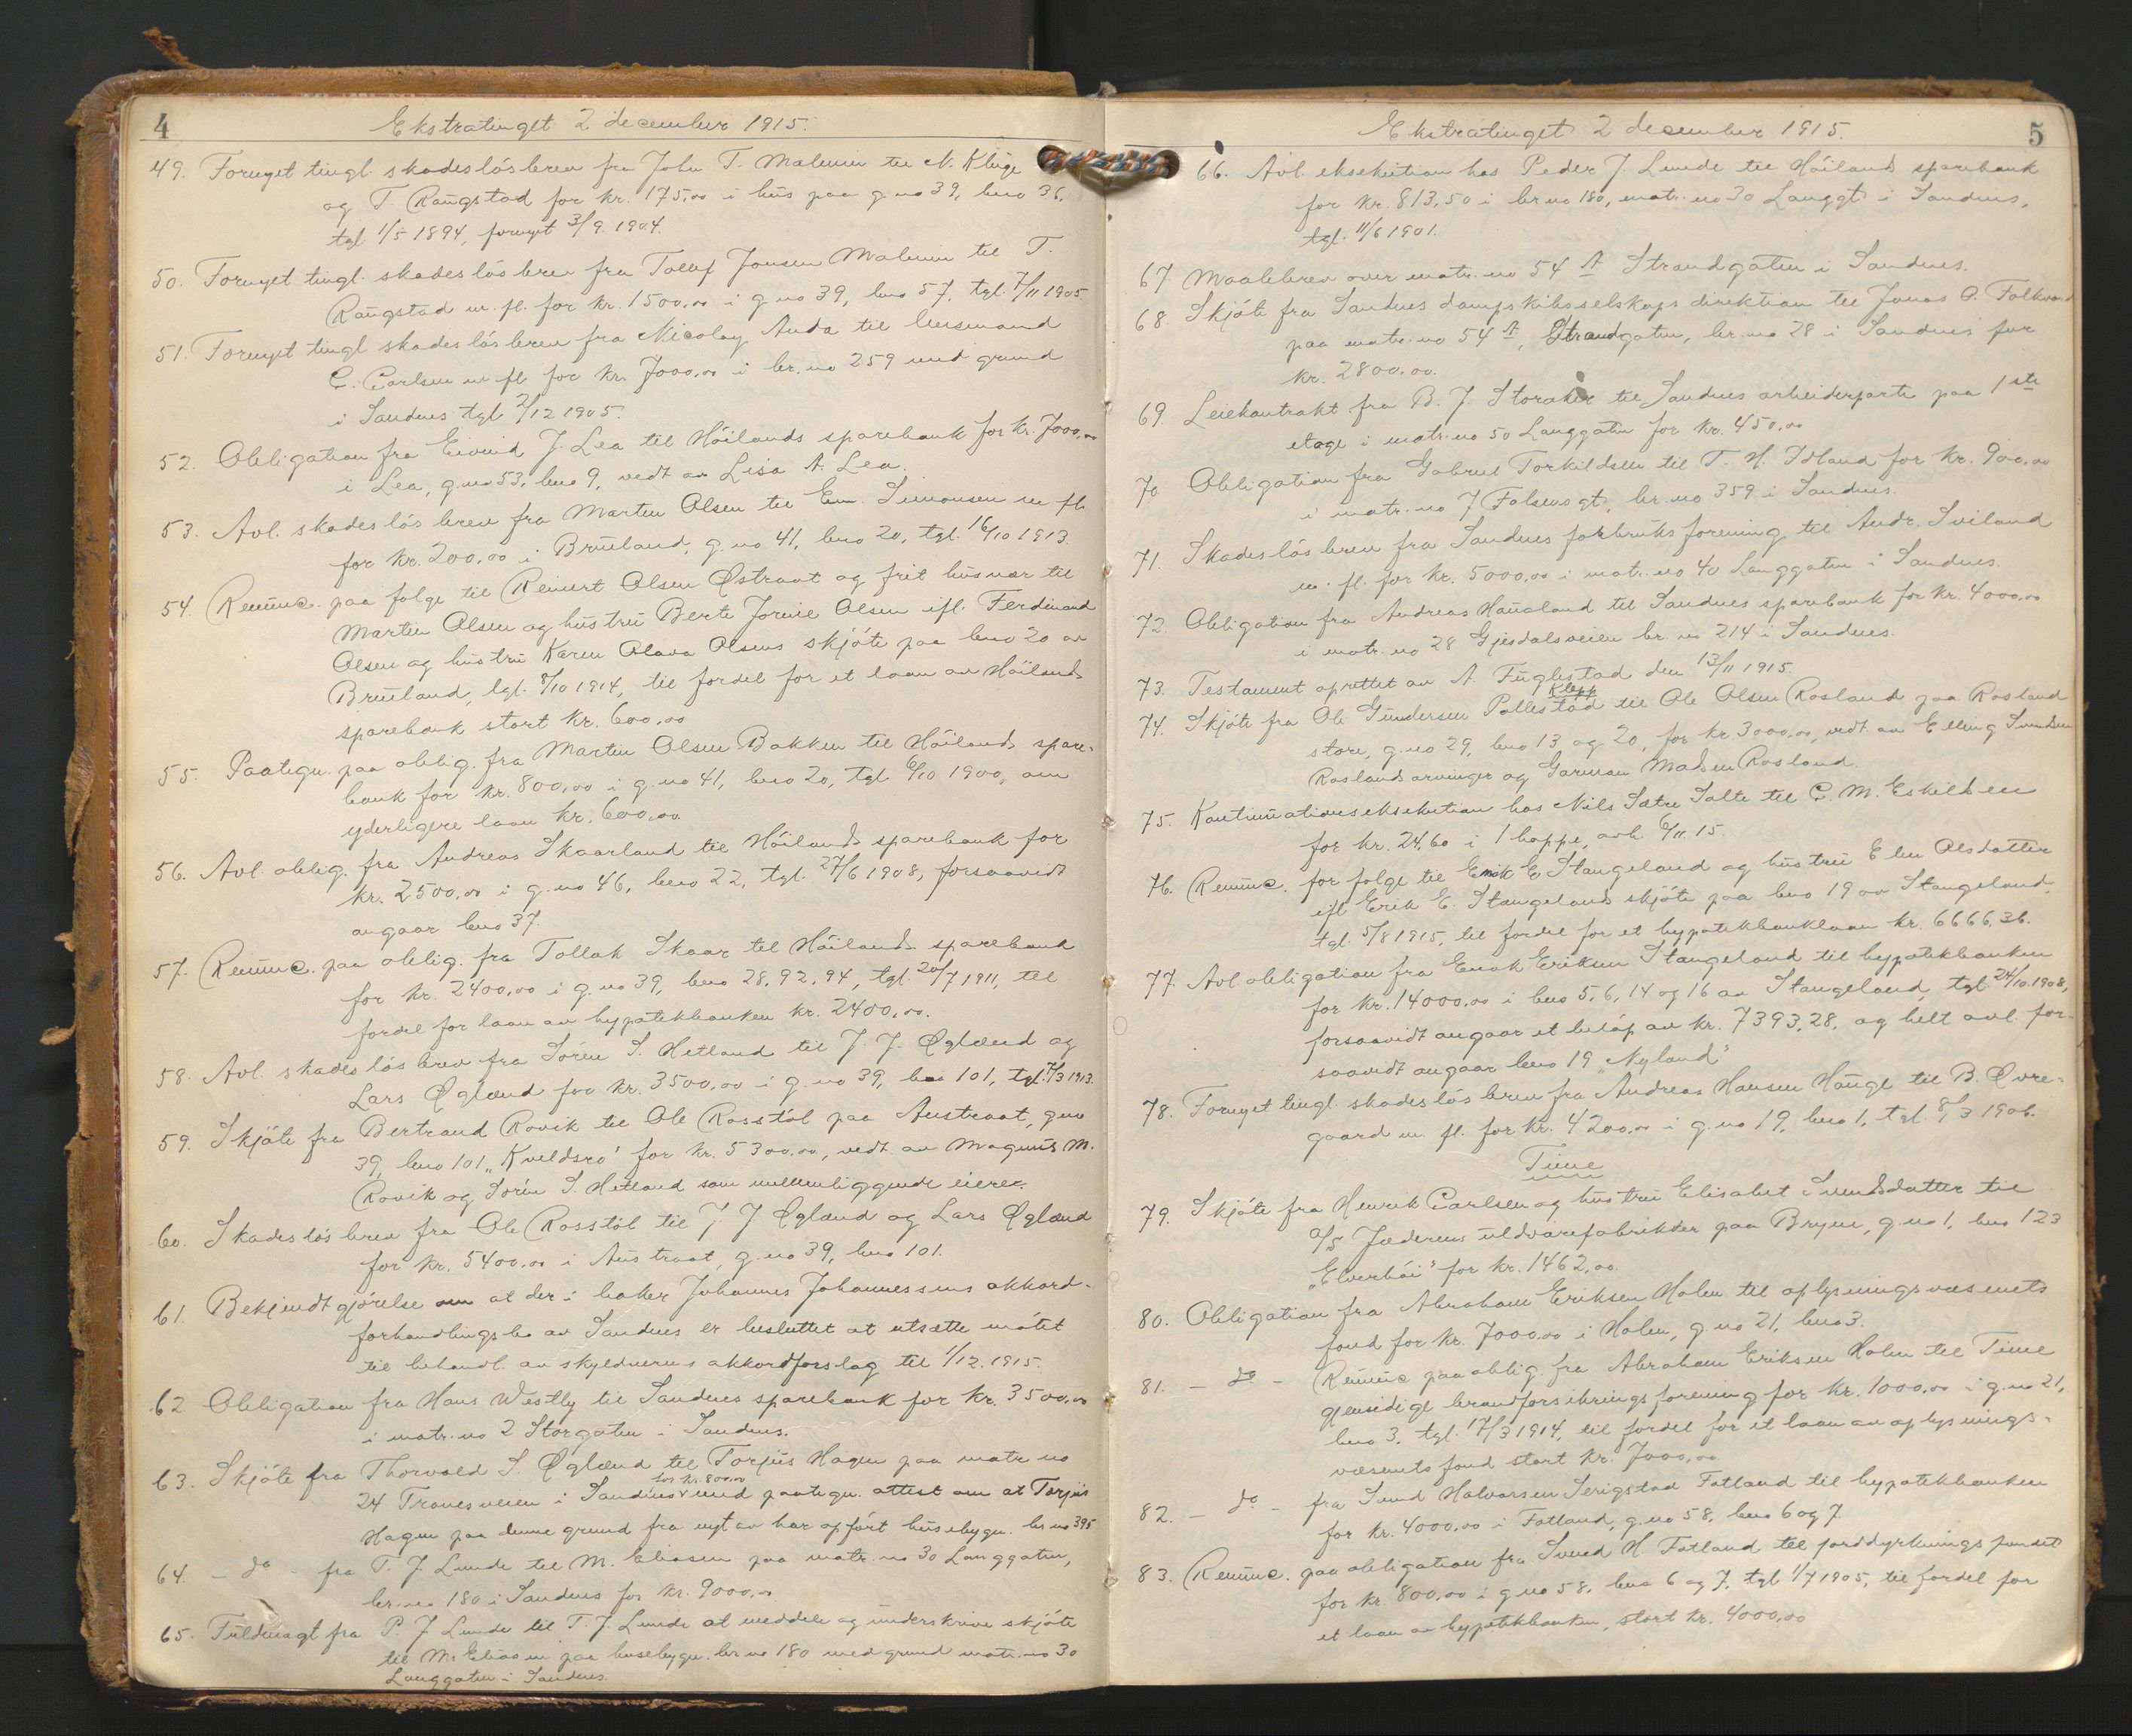 4
Ekstratinget 2 december 1915.
49. Fornyet tingl. skadesløsbrev fra John T. Malmin til N. Kluge
og T. Raugstad for kr. 175,00 i hus paa g.no 39, bno 36,
tgl 1/5 1894, fornyt 3/9 1904.
50. Fornyet tingl. skadesløsbrev fra Tollef Jonsen Malmin til T.
Raugstad m. fl. for kr. 1500,00 i g.no 39, bno 57, tgl. 7/11 1905
51. Fornyet tingl skadesløsbrev fra Nicolay Auda til lensmand
C. Carlsen m fl for kr. 7000,00 i br. no 259 med grund
i Sandnes tgl 2/12 1905.
52. Obligation fra Eivind J. Lea til Höilands sparebank for kr. 7000,00
i Lea, g.no 53, bno 9, vedt av Lisa A. Lea.
53. Avl. skadesløsbrev fra Martin Olsen til Em. Simonsen m fl
for kr. 200,00 i Brueland, g.no 41, bno 20, tgl. 16/10 1913.
54. Renunc. paa følge til Reinert Olsen Østraat og frit husvær til
Martin Olsen og hustru Berte Jorine Olsen ifl. Ferdinand
Olsen og hustru Karen Olava Olsens skjøte paa bno 20 av
Brueland, tgl. 8/10 1914, til fordel for et laan av Höilands
sparebank stort kr. 600,00
55. Paategn. paa oblig. fra Martin Olsen Bakken til Höilands spare-
bank for kr. 800,00 i g.no 41, bno 20, tgl 6/10 1900, om
yderligere laan kr. 600,00
56. Avl. oblig. fra Andreas Skaarland til Höilands sparebank for
kr. 2500,00 i g.no 46, bno 22, tgl. 27/6 1908, forsaavidt
angaar bno 37.
57. Renunc. paa oblig. fra Tollak Skaar til Höilands sparebank
for kr. 2400,00 i g.no 39, bno 28, 92, 94, tgl. 20/7 1911, til
fordel for laan av hypotekbanken kr. 2400,00.
58. Avl. skadesløsbrev fra Sören S. Hetland til J. J. Øglænd og
Lars Øglænd for kr. 3500,00 i g.no 39, bno 101, tgl. 7/3 1913.
59. Skjøte fra Bertrand Rovik til Ole Rosstöl paa Austraat, gno
39, bno 101 „Kveldsro" for kr. 5300,00, vedt. av Magnus M.
Rovik og Sören S. Hetland som mellemliggende eiere.
60. Skadesløsbrev fra Ole Rosstöl til J. J Øglænd og Lars Øglænd
for kr. 5400,00 i Austraat, g.no 39, bno 101.
61. Bekjendtgjörelse om at der i baker Johannes Johannessens akkord-
forhandlingsbo av Sandnes er besluttet at utsætte mötet
til behandl. av skyldnerens akkordforslag til 1/12. 1915.
62 Obligation fra Hans Westly til Sandnes sparebank for kr. 3500,00
i matr. no 2 Storgaten i Sandnes.
63. Skjøte fra Thorvald S. Øglænd til Torjus Hagen paa matr no
for kr. 800,00
24 Tronesveien i Sandnes med paategn. attest om at Torjus
Hagen paa denne grund fra nyt av har opfört husebygn. br no 395
64. - do - fra T. J. Lunde til M. Eliasen paa matr. no 30 Langgaten,
br. no 180 i Sandnes for kr. 9000,00
65. Fuldmagt fra P. J Lunde til T. J. Lunde at meddele og underskrive skjøte
til M. Eliasen paa husebygn. br no 180 med grund matr. no 30
Langgaten i Sandnes.
5
Ekstratinget 2 december 1915.
66. Avl. eksekution hos Peder J. Lunde til Höilands sparebank
for kr. 813,50 i br no 180, matr. no 30 Langgt i Sandnes,
tgl. 11/6 1901.
67. Maalebrev over matr. no 54 A Strandgaten i Sandnes.
68 Skjøte fra Sandnes dampskibsselskaps direktion til Jonas O. Folkvord
paa matr. no 54 A, Strandgaten, br. no 28 i Sandnes for
kr. 2800,00.
69. Leiekontrakt fra B. J. Storaker til Sandnes arbeiderparti paa 1ste
etage i matr. no 50 Langgaten for kr. 450,00
70 Obligation fra Gabriel Torkildsen til T. H. Idland for kr. 900,00
i matr. no 7 Falsensgt, br. no 359 i Sandnes.
71. Skadesløsbrev fra Sandnes forbruksforening til Andr. Sviland
m. fl. for kr. 5000,00 i matr. no 40 Langgaten i Sandnes.
72. Obligation fra Andreas Haualand til Sandnes sparebank for kr. 4000,00
i matr. no 28 Gjesdalsveien br. no 214 i Sandnes.
73. Testament oprettet av A. Fuglestad den 13/11 1915.
Klepp
74. Skjøte fra Ole Gundersen Pollestad til Ole Olsen Rosland paa Rosland
store, g.no 29, bno 13 og 20, for kr. 3000,00, vedt. av Elling Svendsen
Roslands arvinger og Garman Madsen Rosland.
75. Kontinuationseksekution hos Nils Sætre Salte til C. M. Eskildsen
for kr. 24,60 i 1 hoppe, avh. 6/11. 15.
76. Renunc. for følge til Enok E Stangeland og hustru Elen Olsdatter
ifl Erik E. Stangelands skjøte paa bno 19 av Stangeland,
tgl. 5/8 1915, til fordel for et hypotekbanklaan kr. 6666,36.
77. Avl obligation fra Enok Eriksen Stangeland til hypotekbanken
for kr. 14000,00 i bno 5, 6, 14 og 16 av Stangeland, tgl 24/10 1908,
forsaavidt angaar et beløp av kr. 7393,28, og helt avl. for-
saavidt angaar bno 19 „Nyland"
78. Fornyet tingl. skadesløsbrev fra Andreas Hansen Hauge til B. Øvre-
gaard m. fl. for kr. 4200,00 i g.no 19, bno 1, tgl. 8/3 1906.
Time
79. Skjøte fra Henrik Carlsen og hustru Elisabet Svendsdatter til
A/S Jæderens uldvarefabrikker paa Bryne, g.no 1, bno 123
„Elverhöi" for kr. 1462,00.
80. Obligation fra Abraham Eriksen Holen til oplysningsvæsenets
fond for kr. 7000,00 i Holen, g.no 21, bno 3.
81. - do - Renunc paa oblig. fra Abraham Eriksen Holen til Time
gjensidige brandforsikringsforening for kr. 1000,00 i g.no 21,
bno 3, tgl. 17/3 1914, til fordel for et laan av oplysnings-
væsenets fond stort kr. 7000,00.
82. - do - fra Svend Halvorsen Serigstad Fotland til hypotekbanken
for kr. 4000,00 i Fotland, g.no 58, bno 6 og 7.
83. Renunc. paa obligation fra Svend H. Fotland til jorddyrkningsfondet
for kr. 800,00 i g.no 58, bno 6 og 7, tgl 1/7 1905, til fordel for
et laan av hypotekbanken, stort kr. 4000,00